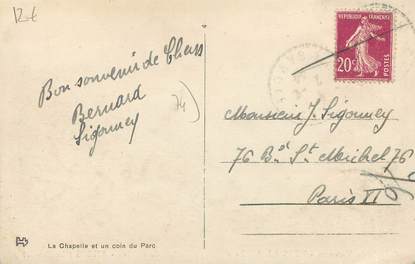 12€
Bon souvenir de
Bernard
Sigonney
74
REPUBLIQUE FRANÇAISE
20c
POSTES
Monsieur J. Sigonney
76 Bd St Michel 76
Paris
La Chapelle et un coin du Parc